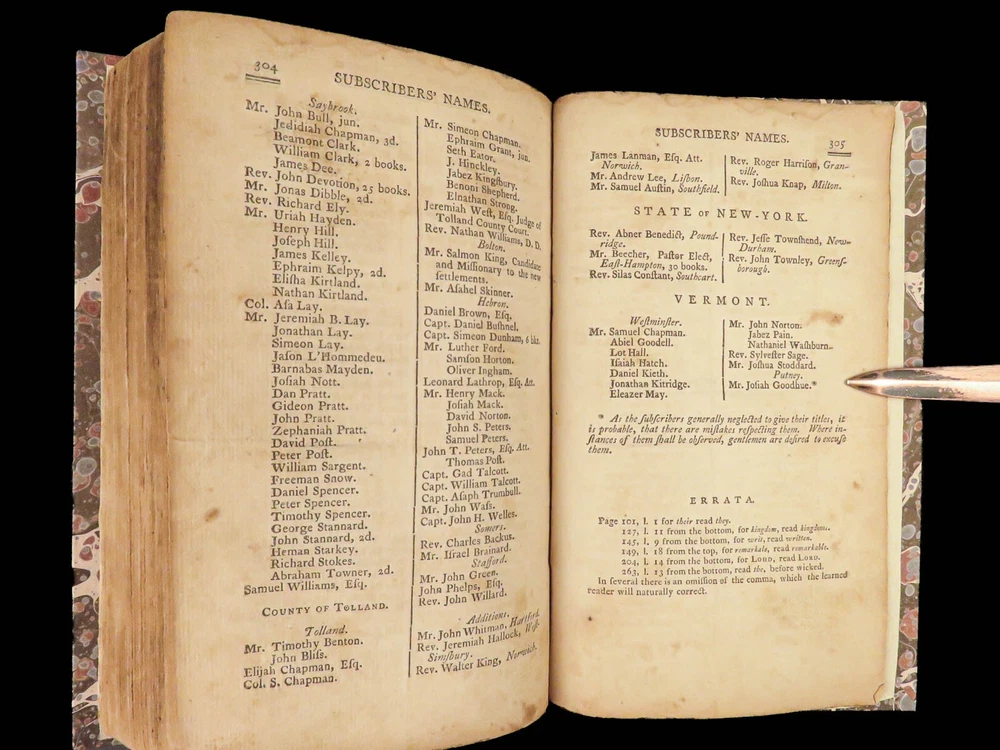 304
SUBSCRIBERS' NAMES.
Saybrook.
Mr. John Bull, jun.
Jedidiah Chapman, 3d.
Beamont Clark.
William Clark, 2 books.
James Dee.
Rev. John Devotion, 25 books.
Mr. Jonas Dibble, 2d.
Rev. Richard Ely.
Mr. Uriah Hayden.
Henry Hill.
Joſeph Hill.
James Kelley.
Ephraim Kelpy, 2d.
Eliſha Kirtland.
Nathan Kirtland.
Col. Aſa Lay.
Mr. Jeremiah B. Lay.
Jonathan Lay.
Simeon Lay.
Jaſon L'Hommedeu.
Barnabas Mayden.
Joſiah Nott.
Dan Pratt.
Gideon Pratt.
John Pratt.
Zephaniah Pratt.
David Poſt.
Peter Poſt.
William Sargent.
Freeman Snow.
Daniel Spencer.
Peter Spencer.
Timothy Spencer.
George Stannard.
John Stannard, 2d.
Heman Starkey.
Richard Stokes.
Abraham Towner, 2d.
Samuel Williams, Eſq.
COUNTY OF TOLLAND.
Tolland.
Mr. Timothy Benton.
John Bliſs.
Elijah Chapman, Eſq.
Col. S. Chapman.
Mr. Simeon Chapman.
Ephraim Grant, jun.
Seth Eator.
J. Hinckley.
Jabez Kingſbury.
Benoni Shepherd.
Elnathan Strong.
Jeremiah Weſt, Eſq. Judge of
Tolland County Court.
Rev. Nathan Williams, D. D.
Bolton.
Mr. Salmon King, Candidate
and Miſſionary to the new
ſettlements.
Mr. Aſahel Skinner.
Hebron.
Daniel Brown, Eſq.
Capt. Daniel Buſhnel.
Capt. Simeon Dunham, 6 bks.
Mr. Luther Ford.
Samſon Horton.
Oliver Ingham.
Leonard Lathrop, Eſq. At.
Mr. Henry Mack.
Joſiah Mack.
David Norton.
John S. Peters.
Samuel Peters.
John T. Peters, Eſq. Att.
Thomas Poſt.
Capt. Gad Talcott.
Capt. William Talcott.
Capt. Aſaph Trumbull.
Mr. John Waſs.
Capt. John H. Welles.
Somers.
Rev. Charles Backus.
Mr. Iſrael Brainard.
Stafford.
Mr. John Green.
John Phelps, Eſq.
Rev. John Willard.
Additions.
Mr. John Whitman, Hartford.
Rev. Jeremiah Hallock, Weſt-
Simſbury.
Rev. Walter King, Norwich.
SUBSCRIBERS' NAMES.
305
James Lanman, Eſq. Att.
Norwich.
Mr. Andrew Lee, Liſbon.
Mr. Samuel Auſtin, Southfield.
Rev. Roger Harriſon, Gran-
ville.
Rev. Joſhua Knap, Milton.
STATE OF NEW-YORK.
Rev. Abner Benedict, Pound-
ridge.
Mr. Beecher, Paſtor Elect,
Eaſt-Hampton, 30 books.
Rev. Silas Conſtant, Southcart.
Rev. Jeſſe Townſhend, New-
Durham.
Rev. John Townley, Greenſ-
borough.
VERMONT.
Weſtminſter.
Mr. Samuel Chapman.
Abiel Goodell.
Lot Hall.
Iſaiah Hatch.
Daniel Kieth.
Jonathan Kitridge.
Eleazer May.
Mr. John Norton.
Jabez Pain.
Nathaniel Waſhburn.
Rev. Sylveſter Sage.
Mr. Joſhua Stoddard.
Putney.
Mr. Joſiah Goodhue.*
* As the ſubſcribers generally neglected to give their titles, it
is probable, that there are miſtakes reſpecting them. Where in-
ſtances of them ſhall be obſerved, gentlemen are deſired to excuſe
them.
ERRATA.
Page 101, l. 1 for their read they.
127, l. 11 from the bottom, for kingdom, read kingdoms.
145, l. 9 from the bottom, for writ, read written.
149, l. 18 from the top, for remarkale, read remarkable.
204, l. 14 from the bottom, for LORD, read LORD.
263, l. 13 from the bottom, read the, before wicked.
In ſeveral there is an omiſſion of the comma, which the learned
reader will naturally correct.